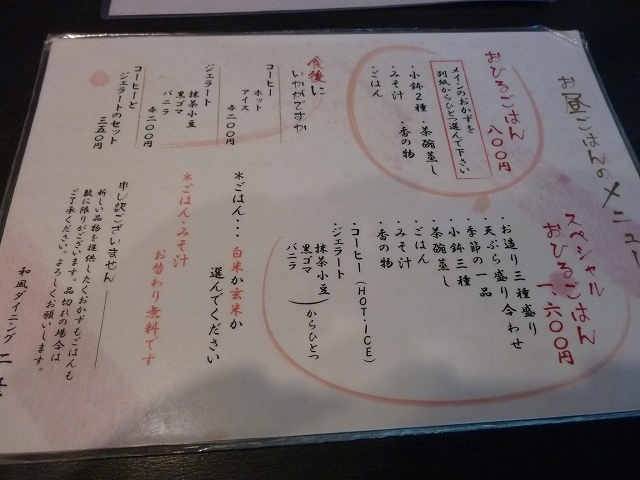 お昼ごはんのメニュー
おひるごはん
八〇〇円
メインのおかずを
別紙からひとつ選んで下さい
・小鉢2種・茶碗蒸し
・みそ汁・香の物
・ごはん
スペシャル
おひるごはん
一、六〇〇円
・お造り三種盛り
・天ぷら盛り合わせ
・季節の一品
・小鉢三種
・茶碗蒸し
・ごはん
・みそ汁
・香の物
・コーヒー(HOT・ICE)
・ジェラート
抹茶小豆
黒ゴマ
バニラ
からひとつ
食後に
いかがですか
コーヒー
ホット
アイス
各二〇〇円
ジェラート
抹茶小豆
黒ゴマ
バニラ
各二〇〇円
コーヒーと
ジェラートのセット
三五〇円
*ごはん・・・白米か玄米か
選んでください
*ごはん・みそ汁
お替わり無料です
申し訳ございません
新しい品物を提供したくおかずもごはんも
数に限りがございます。品切れの場合は
ご了承ください。よろしくお願いします。
和風ダイニング